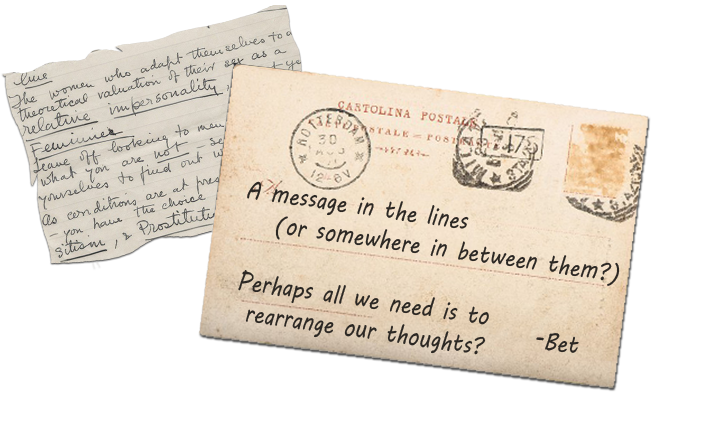 line
The women who adapt themselves to a
theoretical valuation of their sex as a
relative impersonality,
Feminine
Leave off looking to men
what you are not – se
yourselves to find out w
As conditions are at pres
– you have the choice
sitism, & Prostitutio
CARTOLINA POSTALE
POSTALE = POST
ROTTERDAM
30
12-6V
A message in the lines
(or somewhere in between them?)
Perhaps all we need is to
rearrange our thoughts?
-Bet